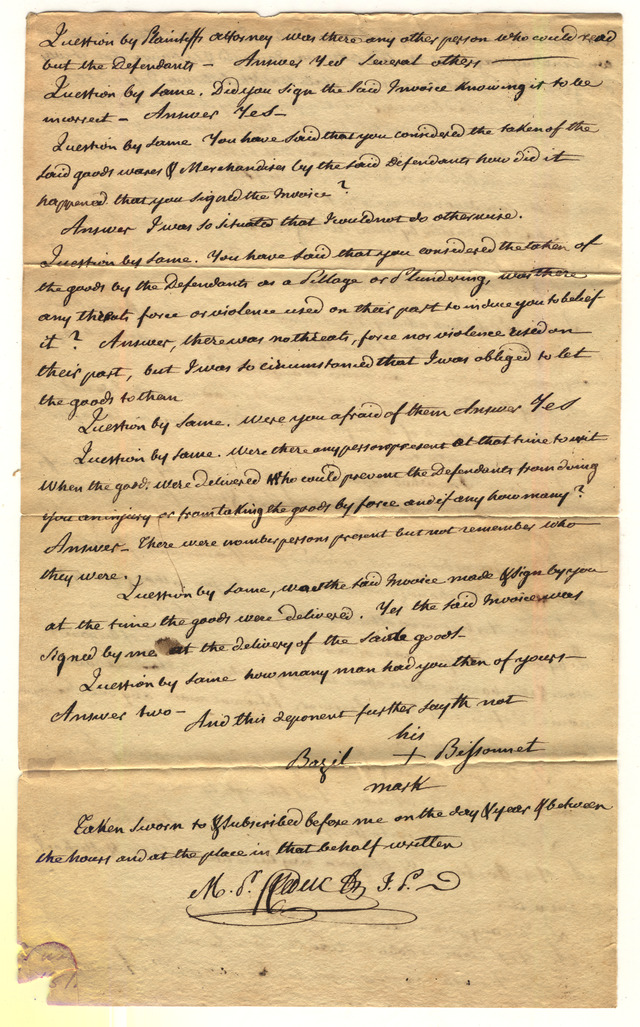 Question by Plaintiffs attorney was there any other person who could read
but the Defendants – Answer Yes Several others
Question by Same. Did you sign the Said Invoice Knowing it to be
incorrect – Answer Yes –
Question by Same You have Said that you considered the taken of the
Said goods wares & Merchandises by the said defendants how did it
happened that you signed the Invoice?
Answer I was so situated that I would not do otherwise.
Question by Same. You have Said that you considered the taken of
the goods by the Defendants as a Pillage or Plundering, was there
any threats force or violence used on their part to induce you to belief
it? Answer, there was no threats, force nor violence used on
their part, but I was so circumstanced that I was obliged to let
the goods to them
Question by Same. Were you afraid of them Answer Yes
Question by Same. Were there any person present at that time to wit
When the good. were delivered Who could prevent the Defendants from doing
you an injury or from taking the goods by force and if any how many?
Answer – there were number persons present but not remember who
they were.
Question by Same, was the said Invoice made & Sign by you
at the time the goods were delivered. Yes the said Invoice was
signed by me at the delivery of the said goods –
Question by Same how many man had you then of yours –
Answer two – And this deponent further sayth not
his
Bazil + Bissonnet
mark
Taken Sworn to & Subscribed before me on the day & year & between
the hours and at the place in that behalf written
M. P. Leduc J. P.